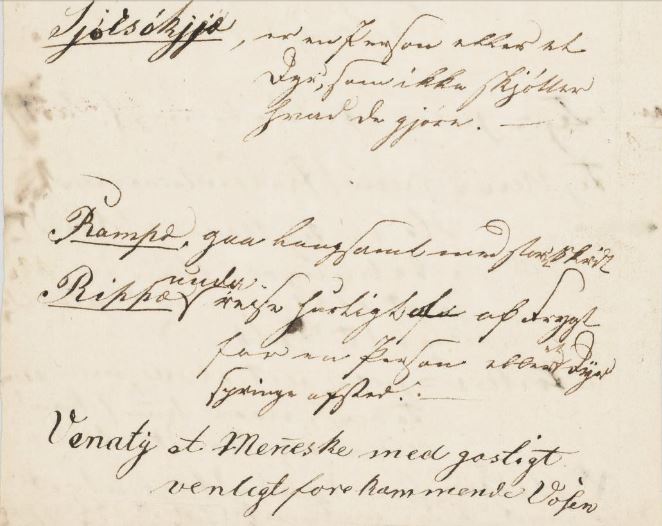 Sjølsókjjæ, er en Person eller et
Dyr, som ikke skjøtter
hvad de gjöre. —
Rampe, gaa langsamt med store Skridt
Rippæ undar reise hurtigt af Frygt
for en Person eller et Dyr
springe afsted. —
Venatij et Menneske med gostigt
venligt forekommende Væsen